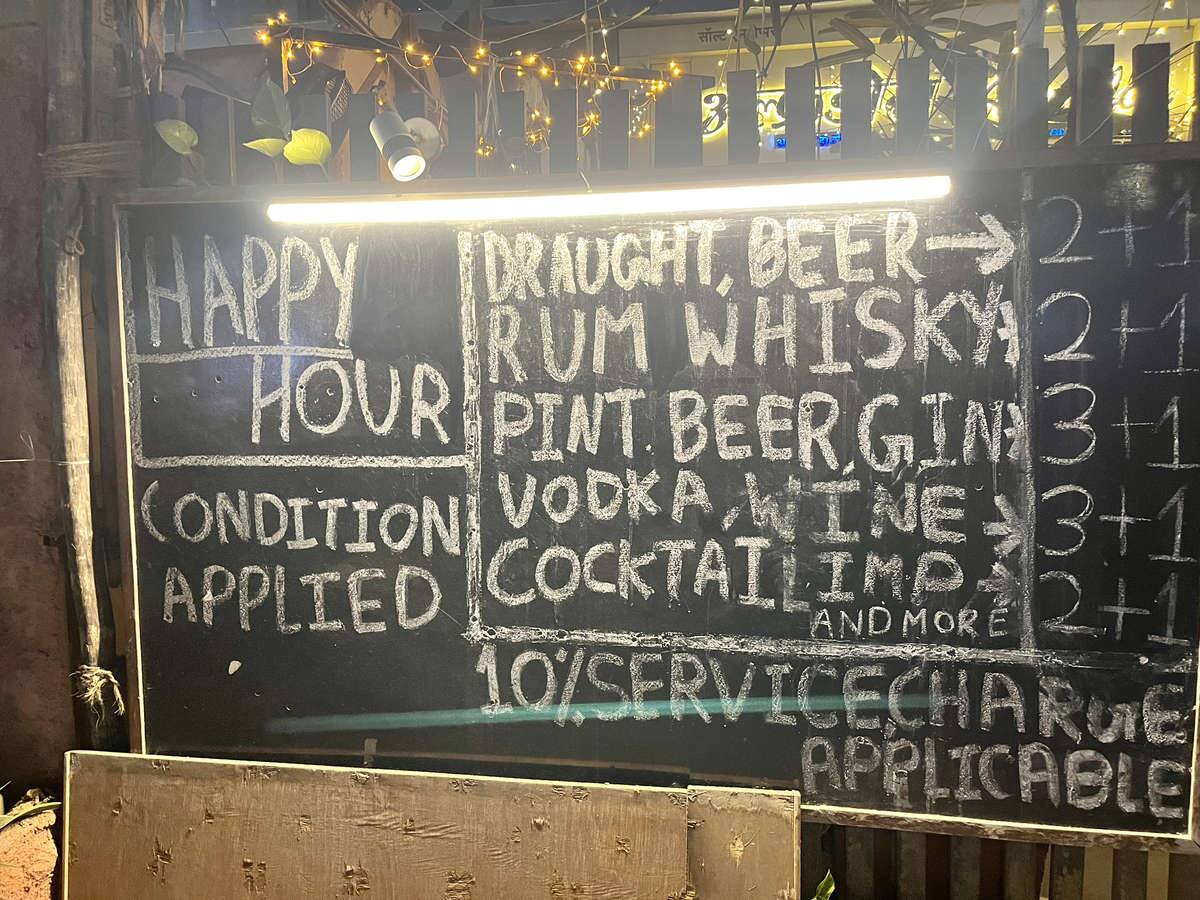 HAPPY
HOUR
CONDITION
APPLIED
DRAUGHT, BEER → 2+1
RUM WHISKY → 2+1
PINT. BEER, GIN → 3+1
VODKA, WINE → 3+1
COCKTAIL IMP → 2+1
AND MORE
10% SERVICE CHARGE
APPLICABLE